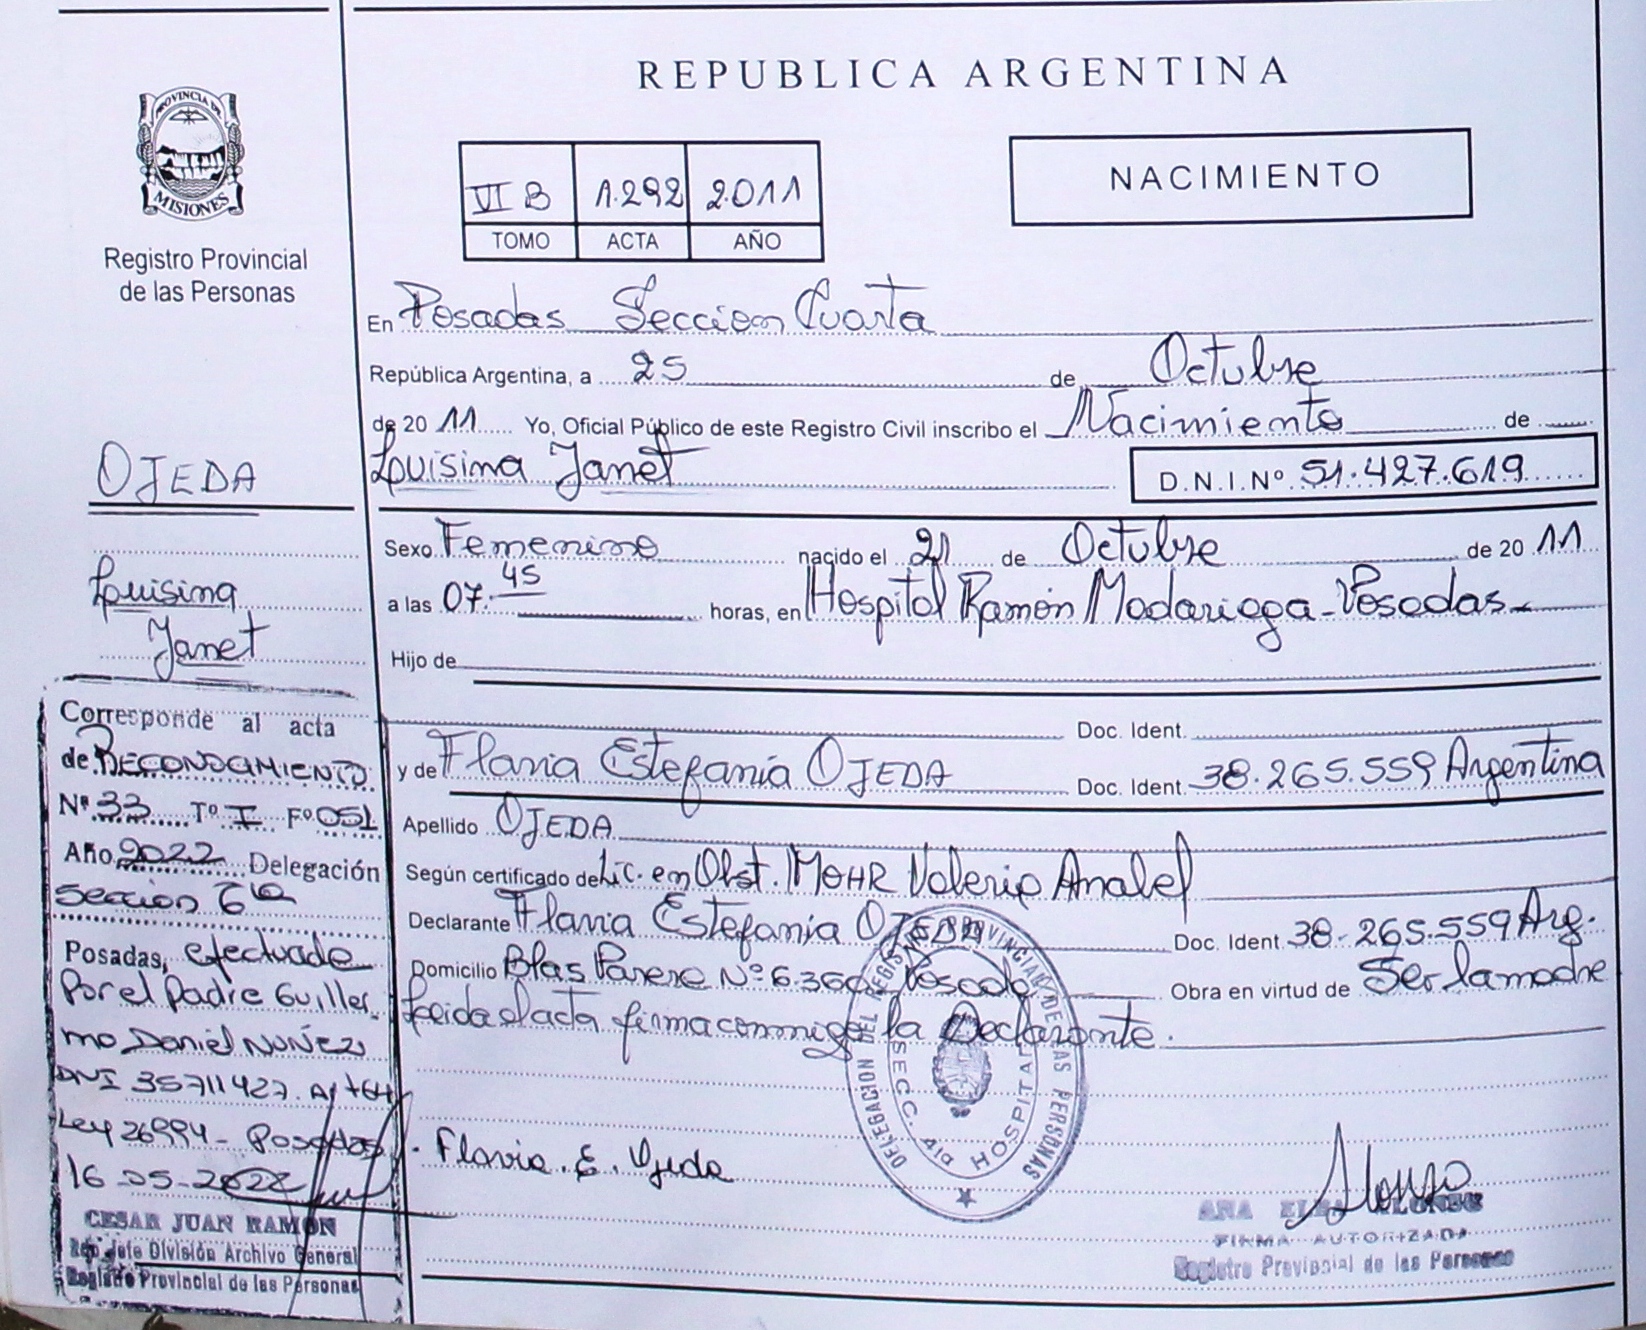 REPUBLICA ARGENTINA
PROVINCIA DE
MISIONES
Registro Provincial
de las Personas
VI B 1.292 2.011
TOMO ACTA AÑO
NACIMIENTO
En Posadas Seccion Cuarta
República Argentina, a 25 de Octubre
de 20 11 Yo, Oficial Público de este Registro Civil inscribo el Nacimiento de
Louisina Janet D.N.I.Nº 51.427.619
OJEDA
Louisina
Janet
Sexo Femenino nacido el 21 de Octubre de 20 11
a las 07.45 horas, en Hospital Ramón Madariaga - Posadas -
Hijo de
Doc. Ident.
y de Flavia Estefanía OJEDA Doc. Ident. 38.265.559 Argentina
Apellido OJEDA
Según certificado de Lic. en Obst. MOHR Valeria
Declarante Flavia Estefanía OJEDA Doc. Ident. 38.265.559 Arg.
Domicilio Blas Parera Nº 6.360 Posadas Obra en virtud de Ser la madre
leida el acta firma conmigo la Declarante.
Corresponde al acta
de RECONOCIMIENTO
Nº 33 Tº I Fº 051
Año 2022 Delegación
Seccion 6ta
Posadas, efectuado
Por el Padre Guiller
mo Daniel NUÑEZ
DNI 35711427.
Ley 26994 - Posadas
16-05-2022
CESAR JUAN RAMÓN
Jefe División Archivo General
Registro Provincial de las Personas
Flavia. E. Ojeda
DELEGACION DEL REGISTRO PROVINCIAL DE LAS PERSONAS
SECC. 4ta HOSPITAL
Alonso
ANA ALONSO
FIRMA AUTORIZADA
Registro Provincial de las Personas